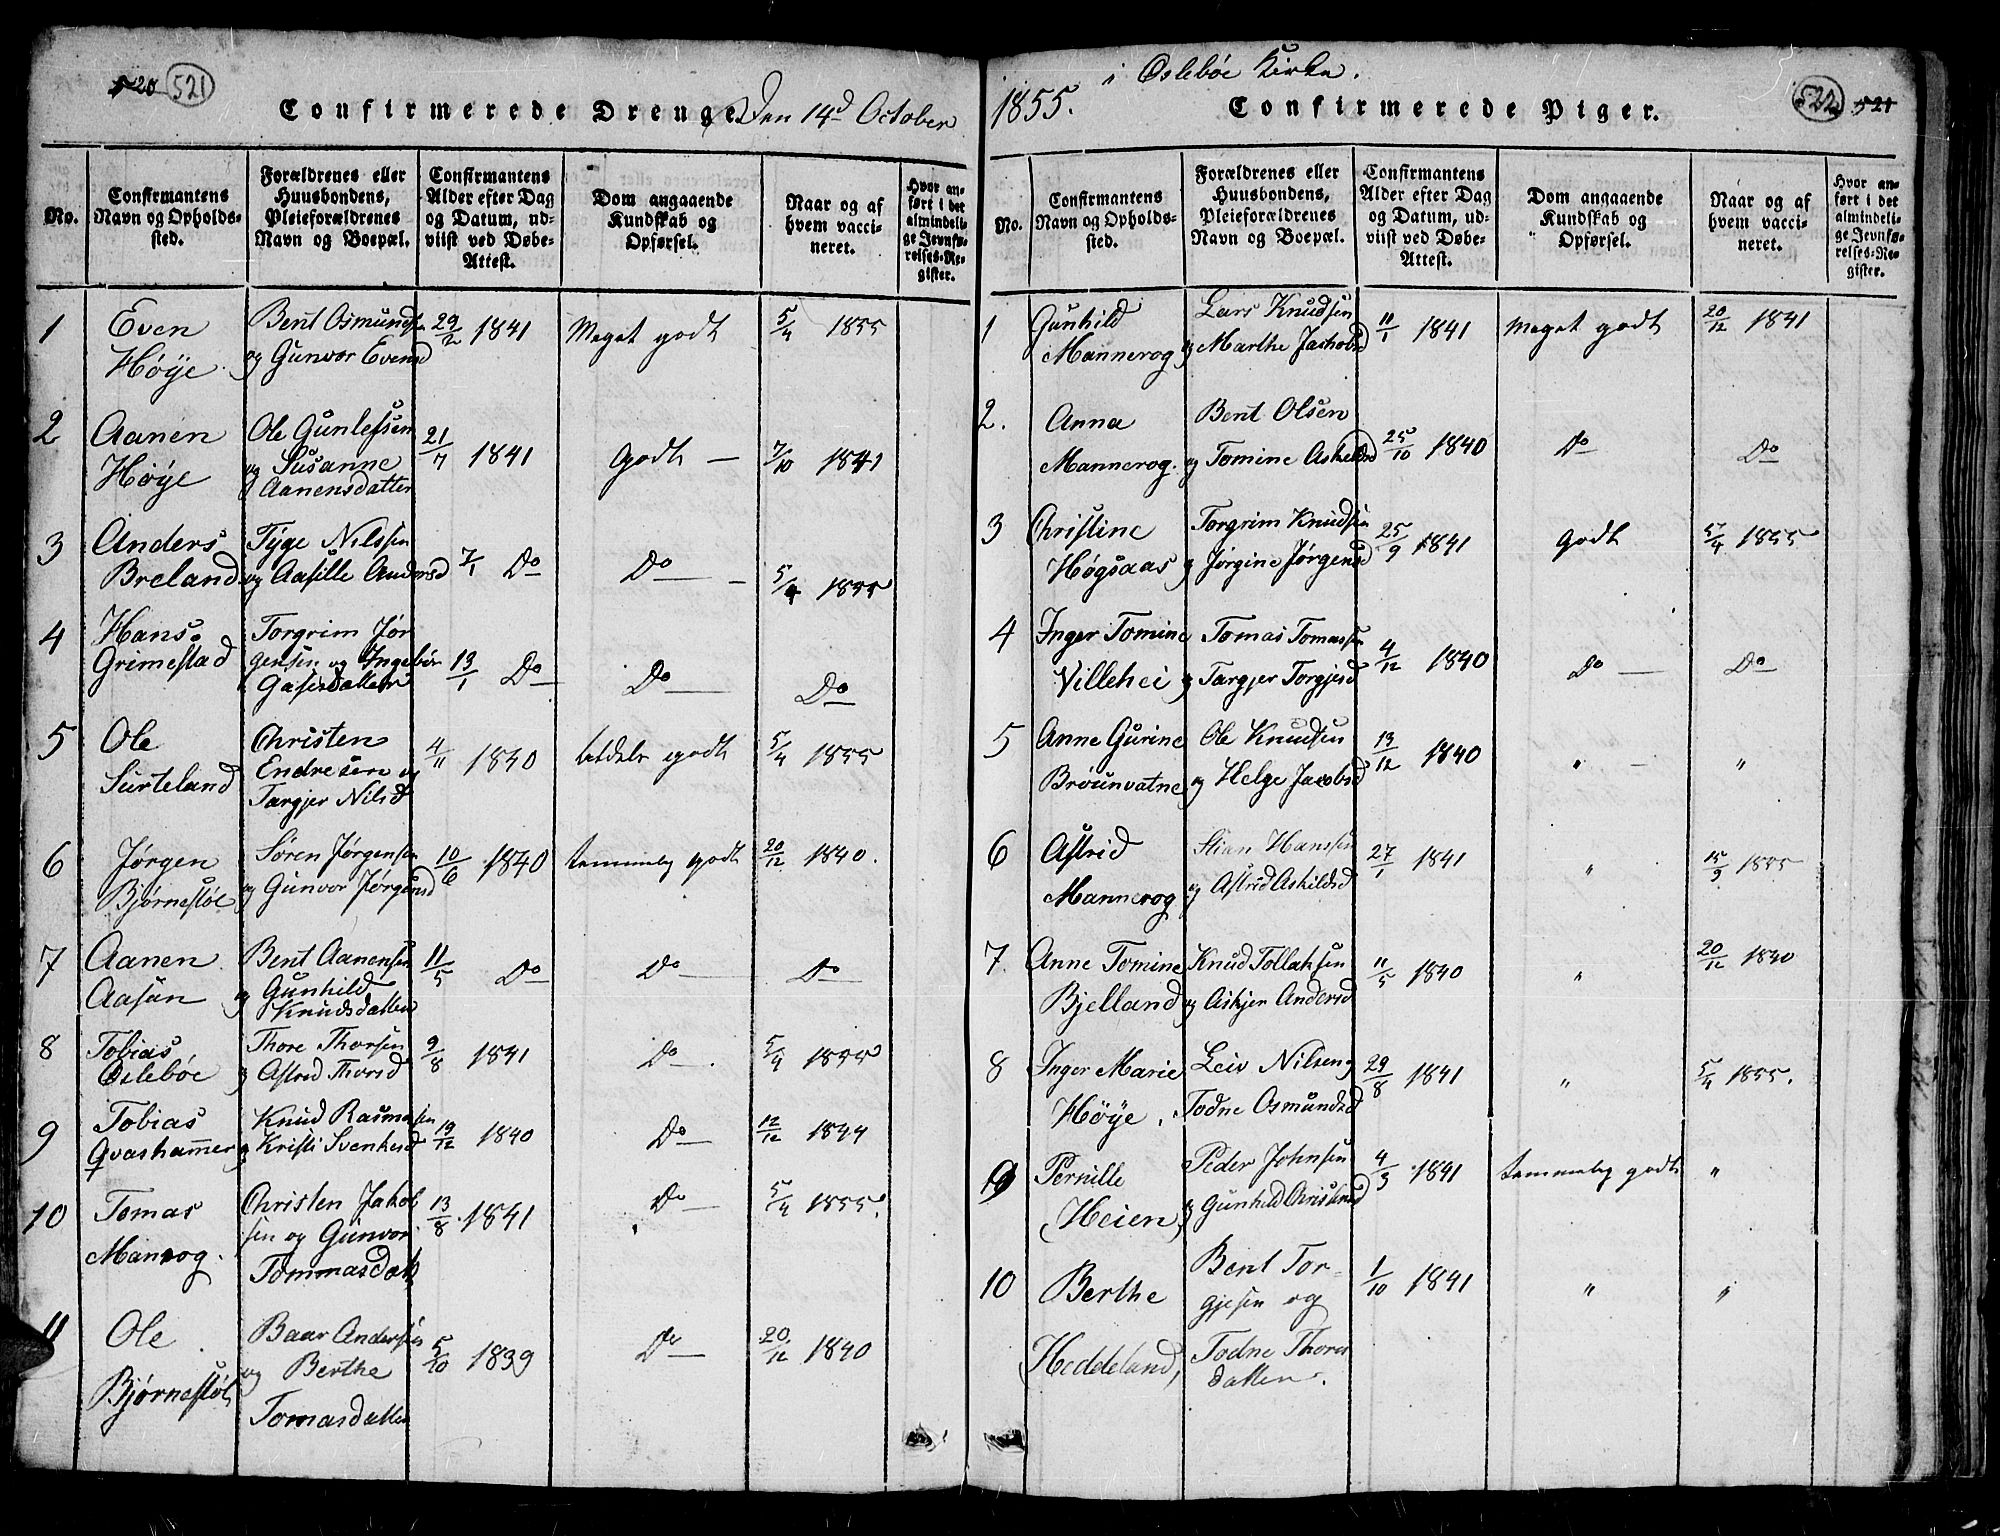 520 521
Confirmerede Drenge. Den 14d October
No.
Confirmantens Navn og Opholds-sted.
Forældrenes eller Huusbondens, Pleieforældrenes Navn og Boepæl.
Confirmantens Alder efter Dag og Datum, ud-viist ved Døbe-Attest.
Dom angaaende Kundskab og Opførsel.
Naar og af hvem vacci-neret.
Hvor an-ført i det almindeli-ge Jevnfø-relses-Re-gister.
1 Even Bent Osmundsen 29/2 1841 Meget godt 5/4 1855
Høye og Gunvor Evensd
2 Aanen Ole Gunlefsen 21/7 1841 Godt — 7/10 1841
Høye og Susanne
Aanensdatter
3 Anders Tyge Nilssen 7/1 Do Do — 5/4 1855
Breland og Aasille Andersd
4 Hans Torgrim Jør
Grimestad gensen og Ingebor 13/1 Do Do — Do
5 Ole Christen 4/11 1840 betdelv godt 5/4 1855
Surteland Endresen og
Targjer Nilsd
6 Jørgen Søren Jørgensen 10/6 1840 temmelig godt 20/12 1840.
Bjørnestøl og Gunvor Jørgensd
7 Aanen Bent Aanensen 11/5 Do Do — Do
Aasen og Gunhild
Knudsdatter
8 Tobias Thore Thorsen 9/8 1841 Do — 5/4 1855
Oslebøe og Astred Thorsd
9 Tobias Knud Rasmusen 19/12 1840 Do 12/12 1844
Qvashammer og Kristi Svenkesd
10 Tomas Christen Jakob 13/8 1841 Do — 5/4 1855.
Manrog. sen og Gunvor
Tommasdatt
11 Ole Baar Andersen 5/10 1839 Do — 20/12 1840
Bjørnestøl og Berthe
Tomasdatter
1855. i Oslebøe Kirke.
Confirmerede Piger. 522 521
No.
Confirmantens Navn og Opholds-sted.
Forældrenes eller Huusbondens, Pleieforældrenes Navn og Boepæl.
Confirmantens Alder efter Dag og Datum, ud-viist ved Døbe-Attest.
Dom angaaende Kundskab og Opførsel.
Naar og af hvem vacci-neret.
Hvor an-ført i det almindeli-ge Jevnfø-relses-Re-gister.
1 Gunhild Lars Knudsen 11/1 1841 Meget godt 20/12 1841
Mannerog og Marthe Jachobsd
2. Anna Bent Olsen 25/10 1840 Do Do
Mannerog. og Tomine Askeldsd
3 Christine Torgrim Knudsen 25/9 1841 Godt 5/4 1855
Høgsaas og Jørgine Jørgensd
4 Inger Tomine Tomas Tomassen 4/12 1840 Do — Do
Villehei og Targjer Torgjesd
5 Anne Gurine Ole Knudsen 13/12 1840 " — "
Brøunvatne og Helge Jacobsd
6 Astrid Stian Hanssen 27/1 1841 " 15/9 1855
Mannerog og Astrid Askildsd
7. Anne Tomine Knud Tollaksen 11/5 1840 " 20/12 1840
Bjelland og Askjer Andersd
8 Inger Marie Leiv Nilsen og 29/8 1841 " 5/4 1855.
Høye. Todne Osmundsd
9 Pernille Peder Johnsen 4/3 1841 temmelig godt "
Heien og Gunhild Christensd
10 Berthe Bent Tor- 1/10 1841 " "
gjesen og
Heddeland, Todne Thores
datter.